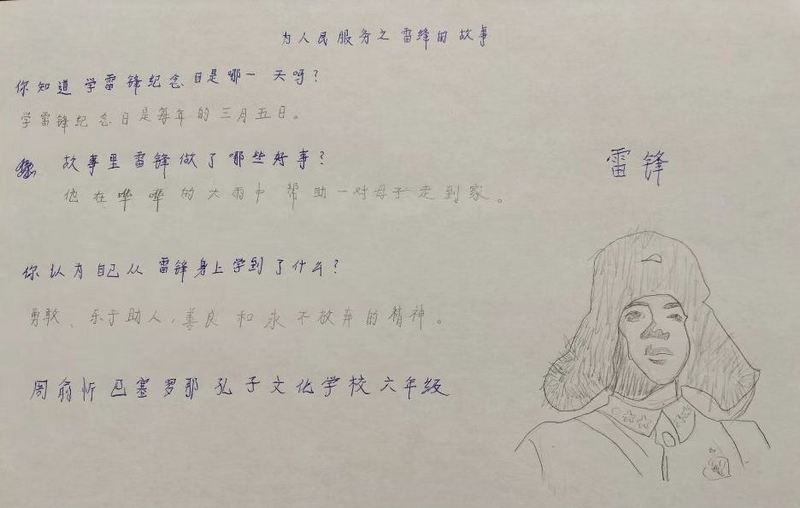 为人民服务之雷锋的故事
你知道学雷锋纪念日是哪一天吗?
学雷锋纪念日是每年的三月五日。
故事里雷锋做了哪些好事?
他在哗哗的大雨中帮助一对母子走到家。
雷锋
你认为自己从雷锋身上学到了什么?
勇敢、乐于助人,善良和永不放弃的精神。
周俞忻巴塞罗那孔子文化学校六年级